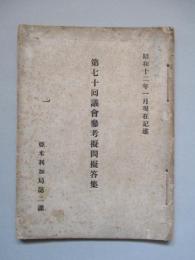 昭和十二年一月現在記述
第七十回議會參考擬問擬答集
亞米利加局第二課